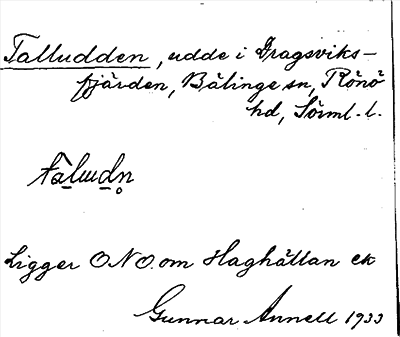 Talludden, udde i Dragsviks-
fjärden, Bälinge sn, Rönö
hd, Sörml. l.
tàludn̥
Ligger ONO. om Haghällan ek
Gunnar Annell 1933